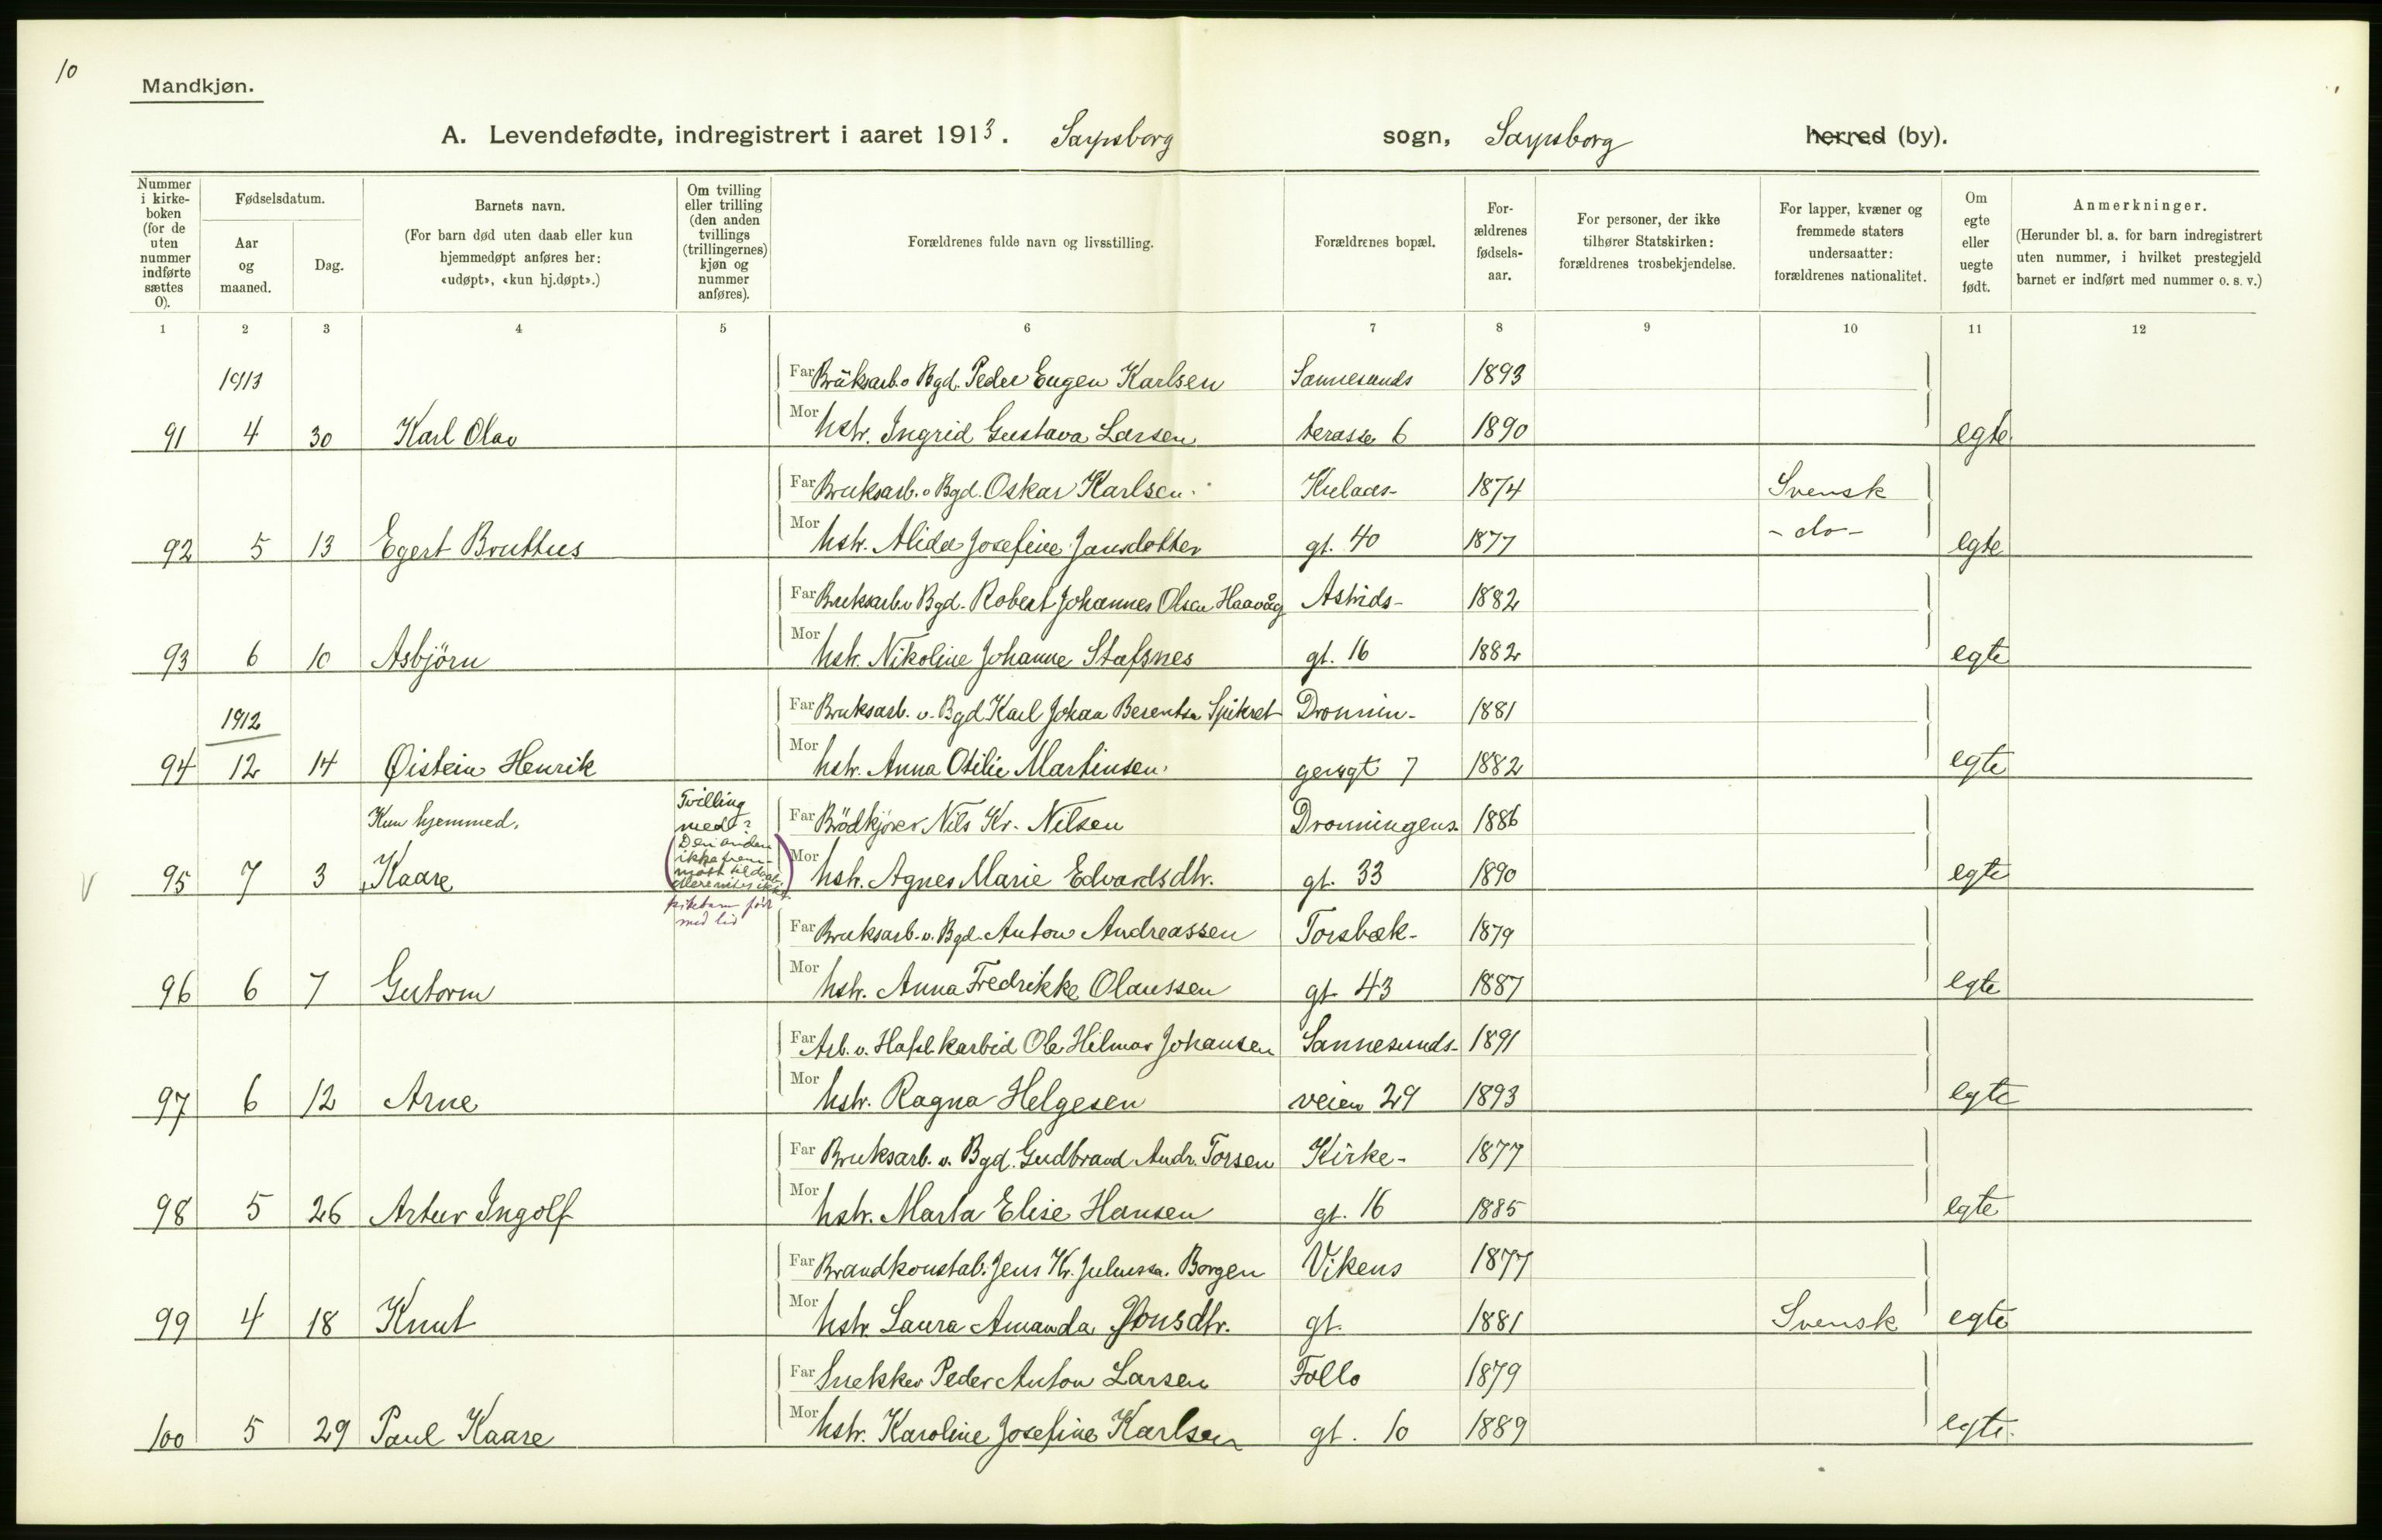 10
Mandkjøn.
A. Levendefødte, indregistrert i aaret 1913. Sarpsborg sogn, Sarpsborg herred (by).
Nummer i kirke-boken (for de uten nummer indførte sættes 0).
Fødselsdatum.
Aar og maaned.
Dag.
Barnets navn.
(For barn død uten daab eller kun hjemmedøpt anføres her: «udøpt», «kun hj.døpt».)
Om tvilling eller trilling (den anden tvillings (trillingernes) kjøn og nummer anføres).
Forældrenes fulde navn og livsstilling.
Forældrenes bopæl.
For-ældrenes fødsels-aar.
For personer, der ikke tilhører Statskirken: forældrenes trosbekjendelse.
For lapper, kvæner og fremmede staters undersaatter: forældrenes nationalitet.
Om egte eller uegte født.
Anmerkninger.
(Herunder bl. a. for barn indregistrert uten nummer, i hvilket prestegjeld barnet er indført med nummer o. s. v.)
1 2 3 4 5 6 7 8 9 10 11 12
1913 Far Bruksarb. v Bgd. Peder Eugen Karlsen Sannesunds 1893
91 4 30 Karl Olav Mor hstr. Ingrid Gustava Larsen terasse 6 1890 egte
Far Bruksarb. v Bgd. Oskar Karlsen Kulaas- 1874 Svensk
92 5 13 Egert Bruttus Mor hstr. Alida Josefine Jansdotter gt. 40 1877 - do - egte
Far Bruksarb. v Bgd. Robert Johannes Olsen Haavåg Astrids- 1882
93 6 10 Asbjörn Mor hstr. Nikoline Johanne Stafsnes gt. 16 1882 egte
1912 Far Bruksarb. v. Bgd Karl Johan Berentsen Spikret Dronnin- 1881
94 12 14 Øistein Henrik Mor hstr. Anna Otilie Martinsen gensgt 7 1882 egte
Kun hjemmed. Tvilling med? Far Brödkjörer Nils Kr. Nilsen Dronningens 1886
(Den anden ikke frem-
95 7 3 Kaare Mor hstr. Agnes Marie Edvardsdtr. gt. 33 1890 egte
pikebarn född
med liv
Far Bruksarb. v. Bgd. Anton Andreassen Torsbæk- 1879
96 6 7 Gutorm Mor hstr. Anna Fredrikke Olaussen gt 43 1887 egte
Far Arb. v. Hafsl. karbid Ole Hilmar Johansen Sannesunds- 1891
97 6 12 Arne Mor hstr. Ragna Helgesen veien 29 1893 egte
Far Bruksarb. v. Bgd. Gudbrand Andr. Torsen Kirke- 1877
98 5 26 Artur Ingolf Mor hstr. Marta Elise Hansen gt. 16 1885 egte
Far Brandkonstab. Jens Kr. Juliussen Borgen Vikens 1877
99 4 18 Knut Mor hstr. Laura Amanda Jonsdtr. gt. 1881 Svensk egte
Far Snekker Peder Anton Larsen Follo 1879
100 5 29 Paul Kaare Mor hstr. Karoline Josefine Karlsen gt. 10 1889 egte.